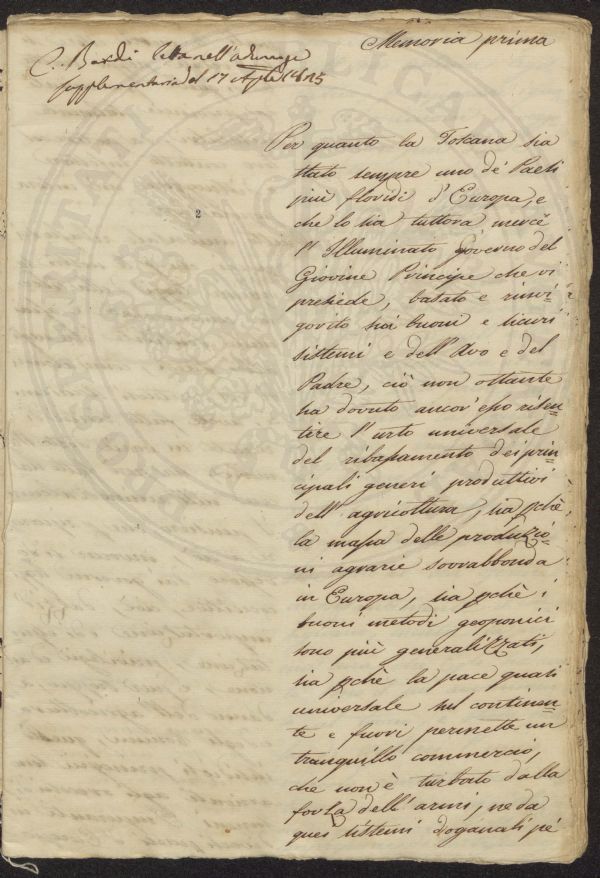 Memoria prima
C. Bardi letta nell'adunanza
supplementaria del 17 Aple 1825
2
Per quanto la Toscana sia
stato sempre uno de' Paesi
più floridi d'Europa, e
che lo sia tuttora mercè
l'Illuminato Governo del
Giovine Principe che vi
presiede, basato e rinvi-
govito sui buoni e sicuri
sistemi e dell'Avo e del
Padre, ciò non ostante
ha dovuto ancor'esso risen-
tire l'urto universale
del ribassamento dei prin-
cipali generi produttivi
dell'agricoltura, sia pchè
la massa delle produzio-
ni agrarie sovrabbonda
in Europa, sia pchè i
buoni metodi geoponici
sono più generalizzati,
sia pchè la pace quasi
universale sul continen-
te e fuori permette un
tranquillo commercio,
che non è turbato dalla
forza dell'armi, ne da
quei sistemi doganali pè